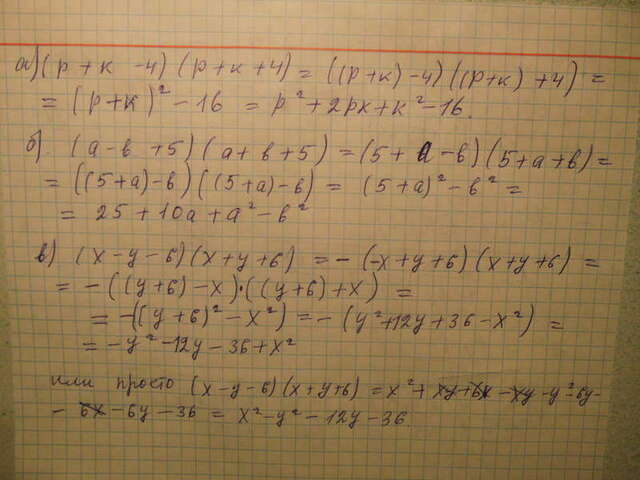 а) (p + к - 4) (p + к + 4) = ((p+к) - 4) ((p+к) + 4) =
= (p+к)² - 16 = p² + 2pк + к² - 16.
б). (a - в + 5) (a + в + 5) = (5 + a - в) (5 + a + в) =
= ((5+a) - в) ((5+a) - в) = (5+a)² - в² =
= 25 + 10a + a² - в²
в) (x - y - 6) (x + y + 6) = - (-x + y + 6) (x + y + 6) =
= - ((y+6) - x)·((y+6) + x) =
= -((y+6)² - x²) = - (y² + 12y + 36 - x²) =
= - y² - 12y - 36 + x²
или просто (x - y - 6) (x + y + 6) = x² + xy + 6x - xy - y² - 6y -
- 6x - 6y - 36 = x² - y² - 12y - 36.